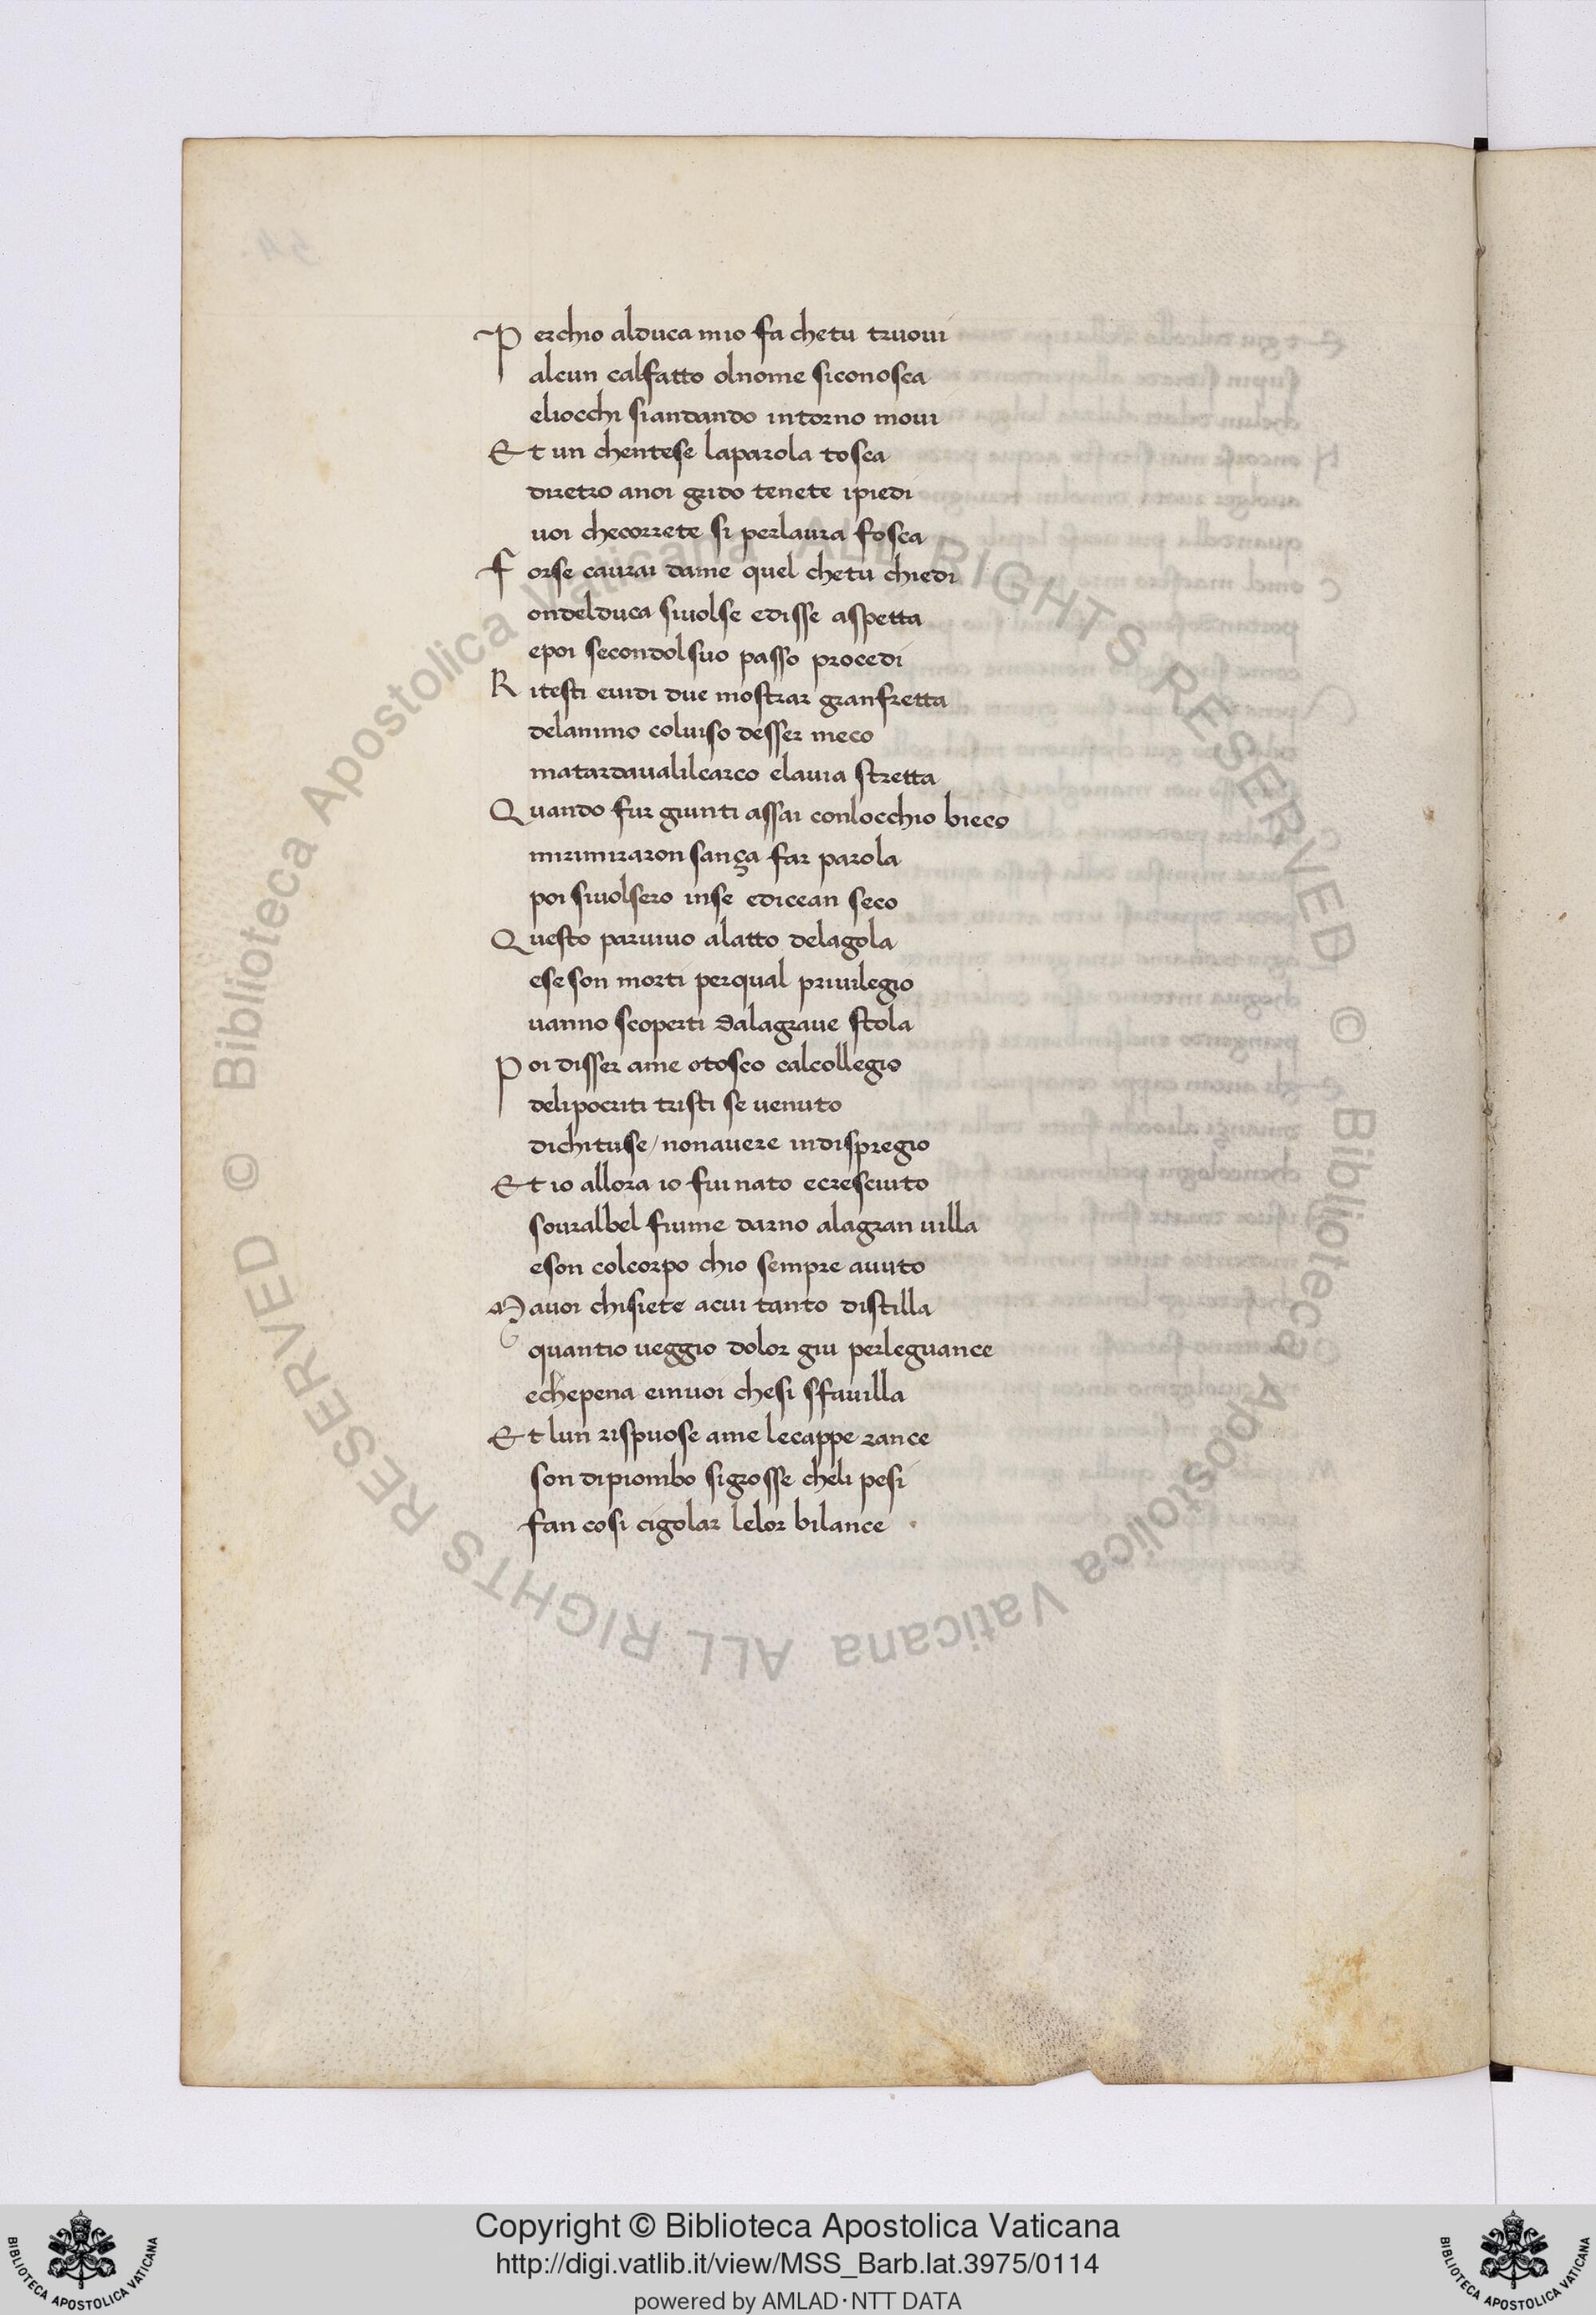 Perchio alduca mio fa chetu truoui
alcun calfatto olnome siconosca
eliocchi siandando intorno moui
Et un chentese laparola tosca
diretro anoi grido tenete ipiedi
uoi checorrete si perlaura fosca
Forse caurai dame quel chetu chiedi
ondelduca siuolse edisse aspetta
epoi secondolsuo passo procedi
Ritesti euidi due mostrar granfretta
delanimo coluiso desser meco
matardaualilcarco elauia stretta
Quando fur giunti assai conlocchio bieco
mirimiraron sança far parola
poi siuolsero inse edicean seco
Questo paruiuo alatto delagola
ese son morti perqual priuilegio
uanno scoperti dalagraue stola
Poi disser ame otosco calcollegio
delipocriti tristi se uenuto
dichituse/nonauere indispregio
Et io allora io fui nato ecresciuto
souralbel fiume darno alagran uilla
eson colcorpo chio sempre auuto
Mauoi chisiete acui tanto distilla
quantio ueggio dolor giu perleguance
echepena einuoi chesi sfauilla
Et lun rispuose ame lecappe rance
son dipiombo sigrosse cheli pesi
fan cosi cigolar lelor bilance
Copyright © Biblioteca Apostolica Vaticana
http://digi.vatlib.it/view/MSS_Barb.lat.3975/0114
powered by AMLAD·NTT DATA
© Biblioteca Apostolica Vaticana ALL RIGHTS RESERVED
© Biblioteca Apostolica Vaticana ALL RIGHTS RESERVED
BIBLIOTECA APOSTOLICA VATICANA
BIBLIOTECA APOSTOLICA VATICANA